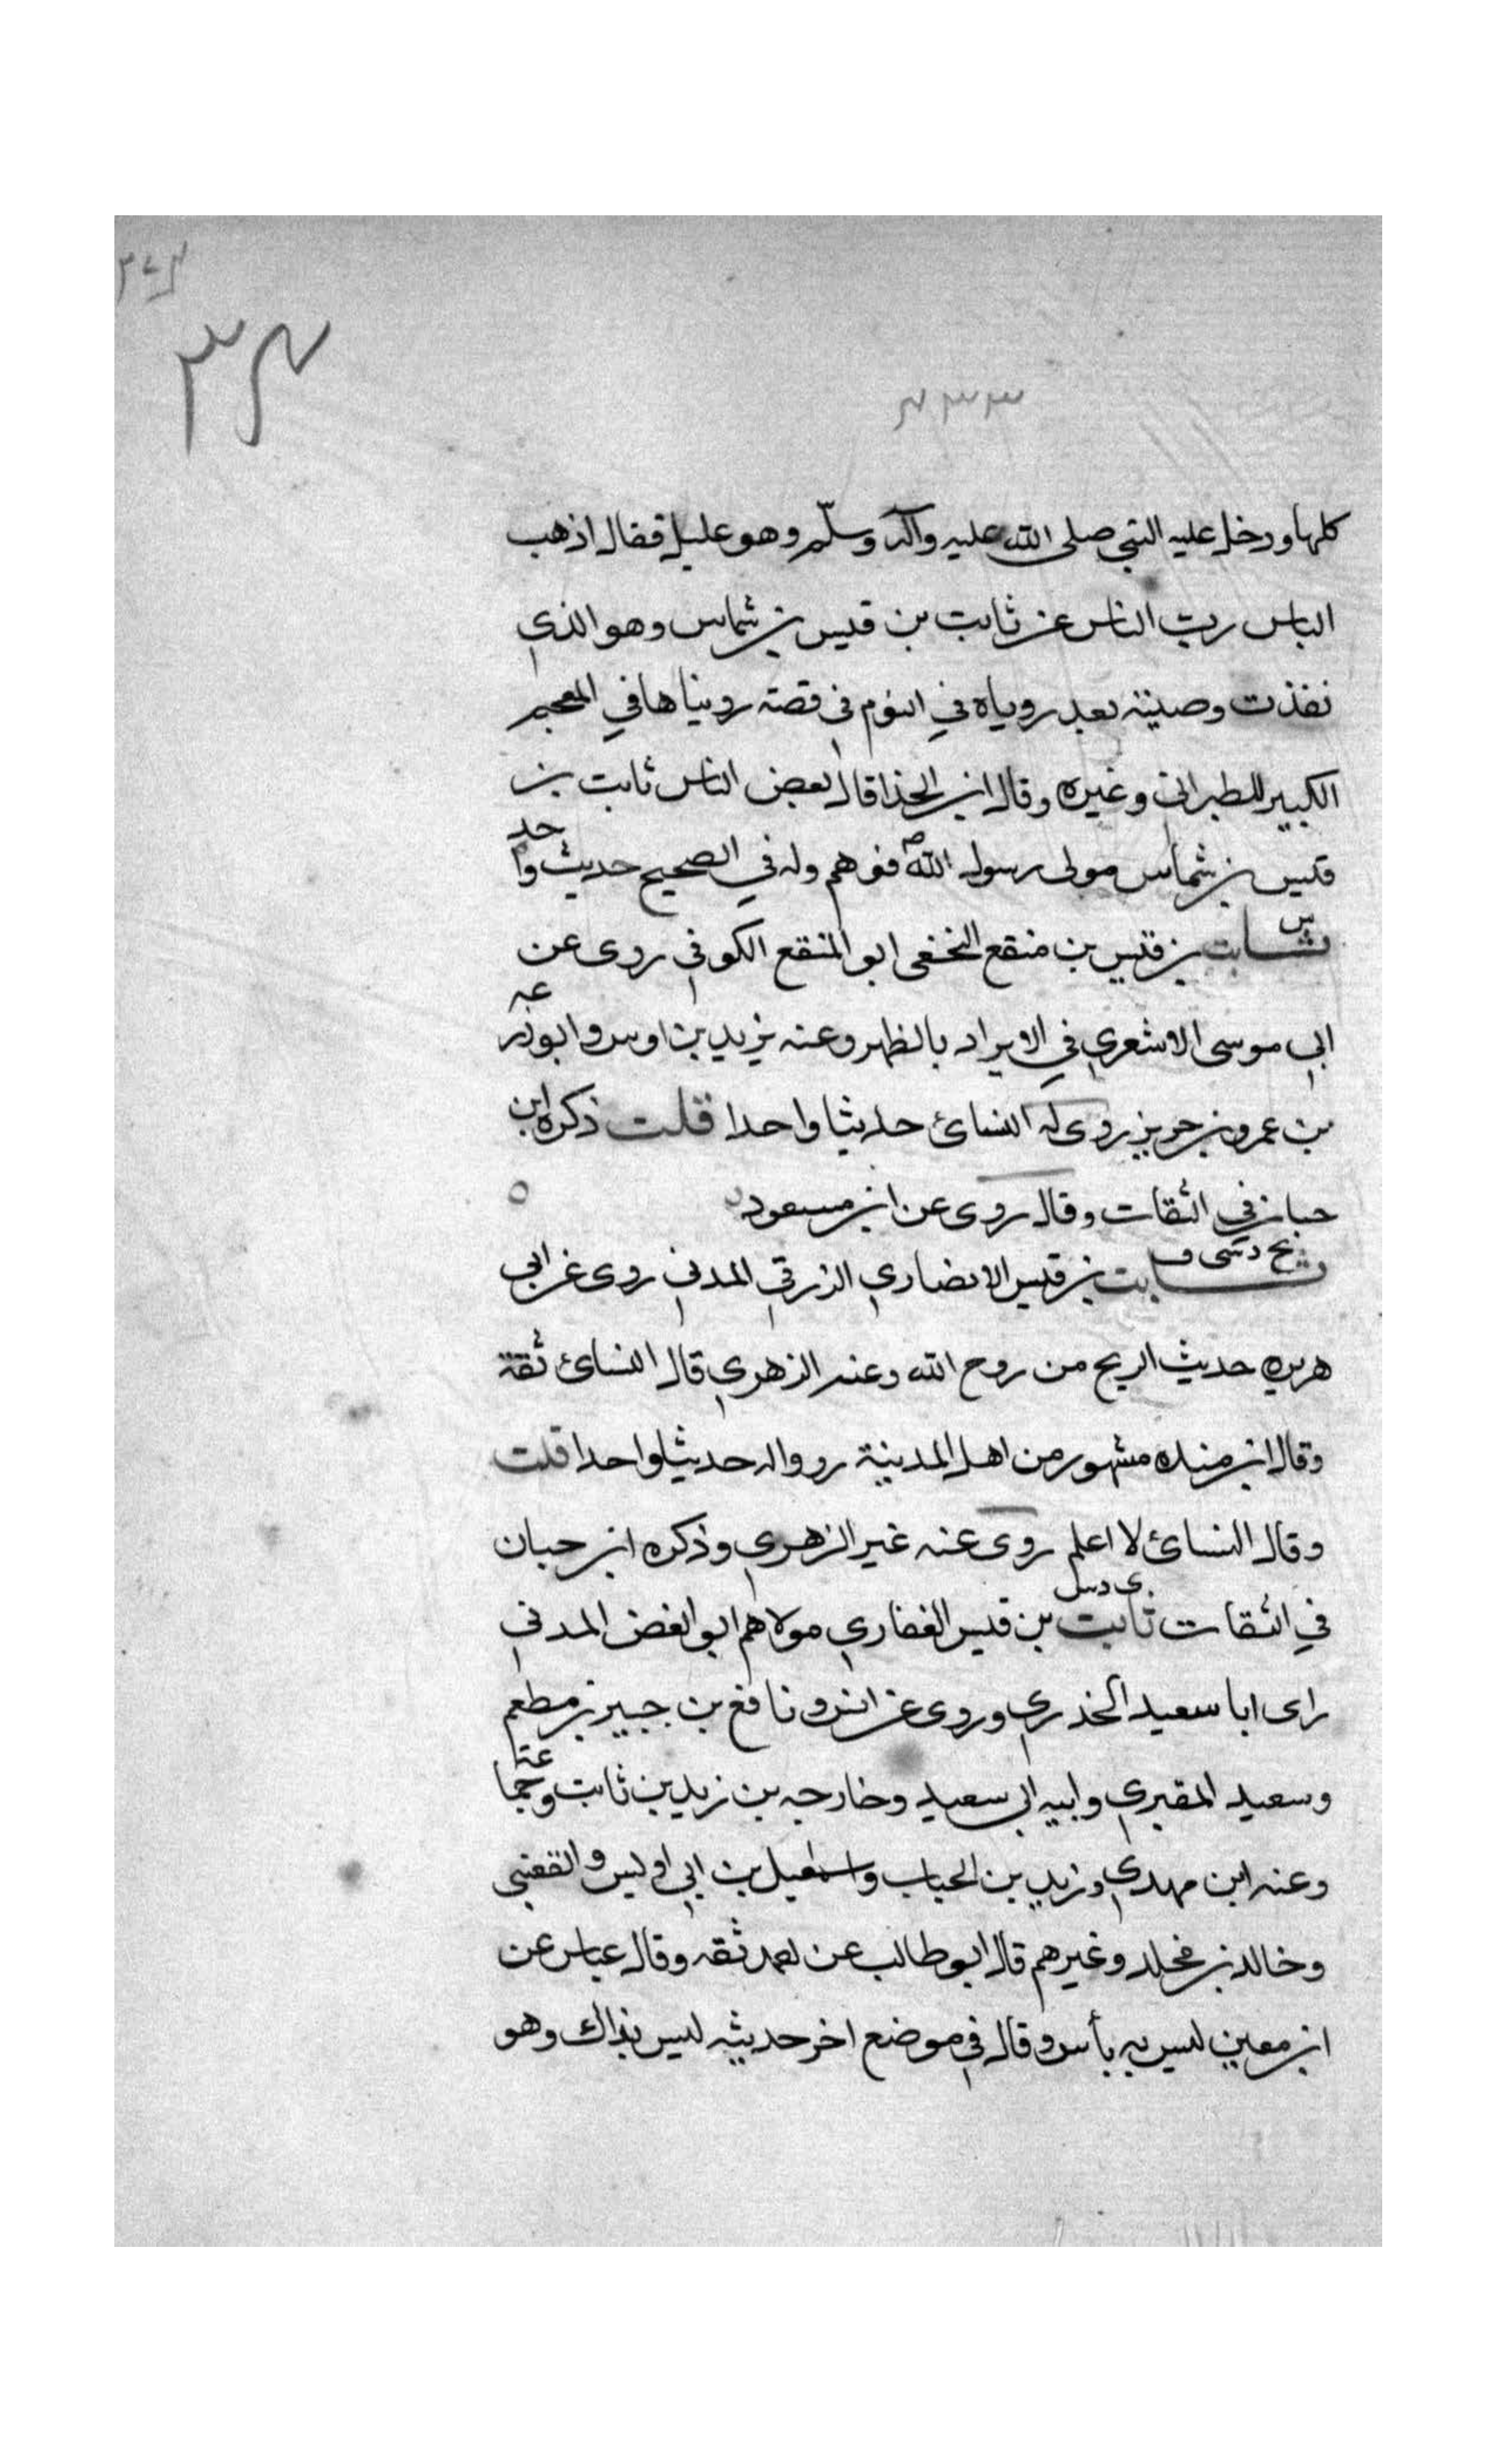 ٣٤
كلها ودخل عليه النبي صلى الله عليه وآله وسلم وهو عليل فقال اذهب
الباس رب الناس عن ثابت بن قيس بن شماس وهو الذي
نفذت وصيته بعد روياه في النوم في قصة رويناها في المعجم
الكبير للطبراني وغيره وقال ابن الحذا قال بعض الناس ثابت بن
قيس بن شماس مولى رسول الله ص فوهم وله في الصحيح حديث واحد
س ثابت بن قيس بن منقع النخعي ابو المنقع الكوفي روى عن
ابي موسى الاشعري في الابراد بالظهر وعنه يزيد بن اوس وابو زرعه
بن عمرو بن جرير روى له النسائ حديثا واحدا قلت ذكره ابن
حبان في الثقات وقال روى عن ابن مسعود ٥
ثابت بن قيس الانصاري الزرقي المدني روى عن ابي
هريره حديث الريح من روح الله وعنه الزهري قال النسائ ثقة
وقال ابن منده مشهور من اهل المدينة رووا له حديثا واحدا قلت
وقال النسائ لا اعلم روى عنه غير الزهري وذكره ابن حبان
في الثقات ثابت بن قيس الغفاري مولاهم ابو الغضن المدني
راى ابا سعيد الخدري وروى عن انس ونافع بن جبير بن مطعم
وسعيد المقبري وابيه ابي سعيد وخارجه بن زيد بن ثابت وجماعة
وعنه ابن مهدي وزيد بن الحباب واسمعيل بن ابي اويس والقعنبي
وخالد بن مخلد وغيرهم قال ابو طالب عن احمد ثقه وقال عباس عن
ابن معين ليس به بأس وقال في موضع اخر حديثه ليس بذاك وهو